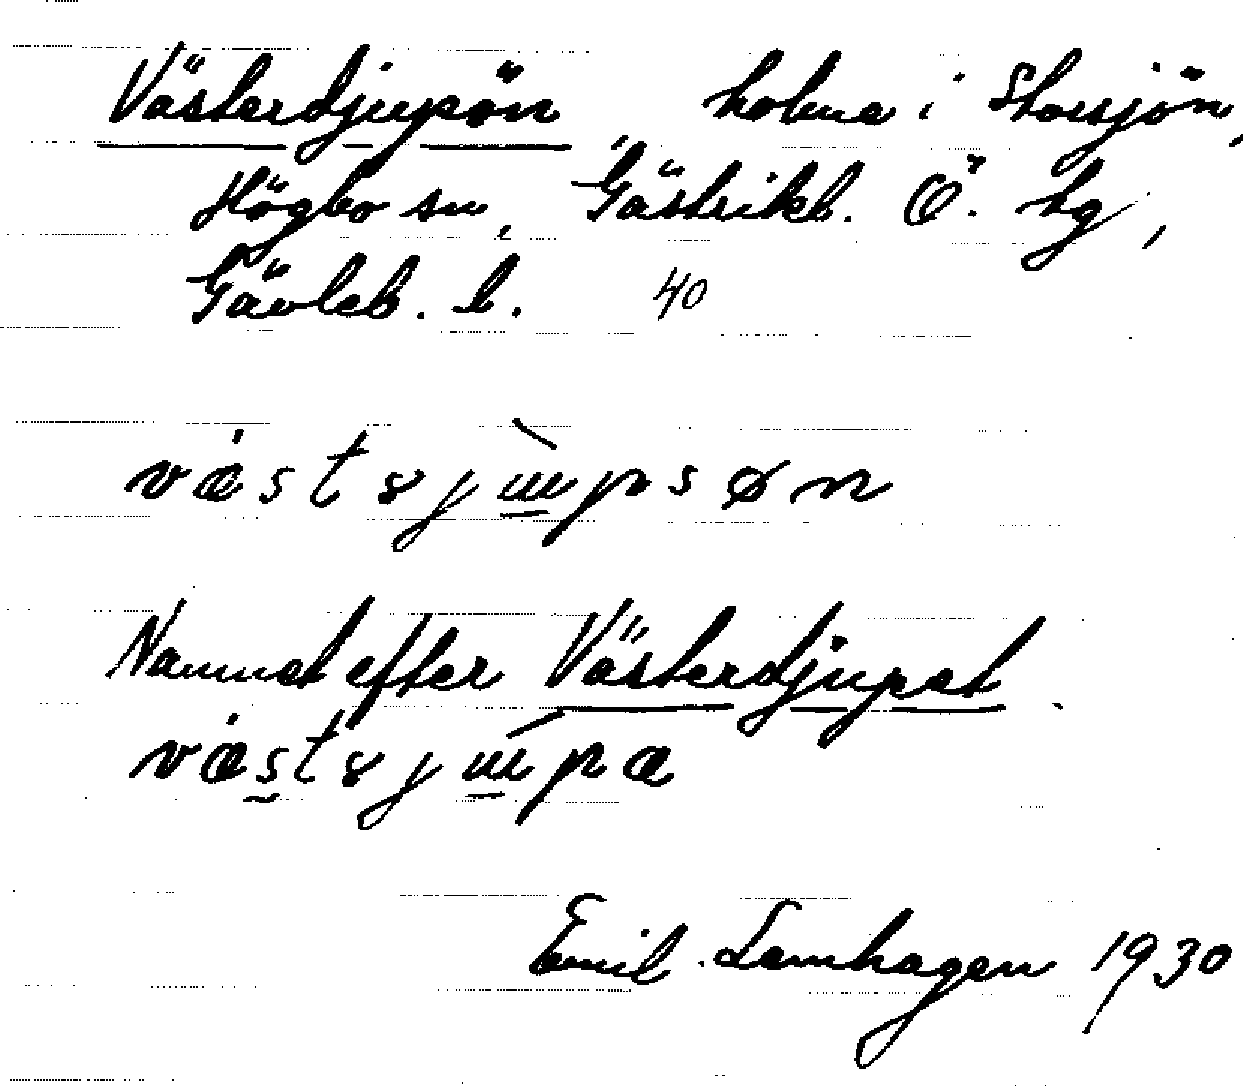 Västerdjupön, holme i Storsjön,
Högbo sn, Gästrikl. Ö. hg,
Gävleb. l. 40
Namnet efter Västerdjupet.
Emil Lamhagen 1930